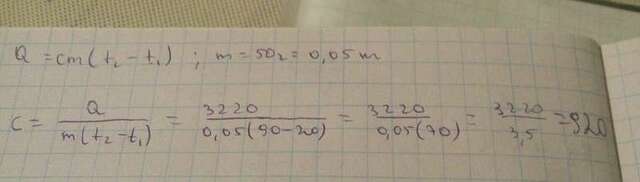 Q = cm(t₂ - t₁) ; m = 50г = 0,05 m
c = Q / m(t₂-t₁) = 3220 / 0,05(90-20) = 3220 / 0,05(70) = 3220 / 3,5 = 920